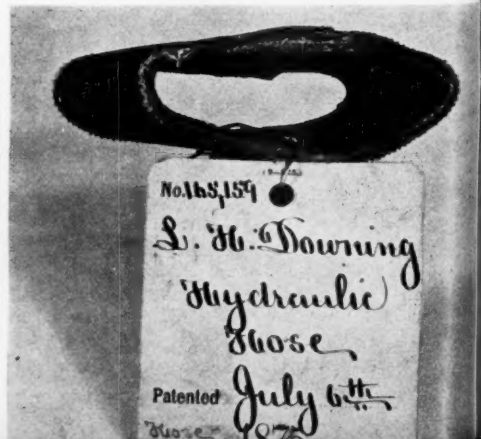 No.165,159
L. H. Downing
Hydraulic
Hose
Patented July 6th
Hose 1875